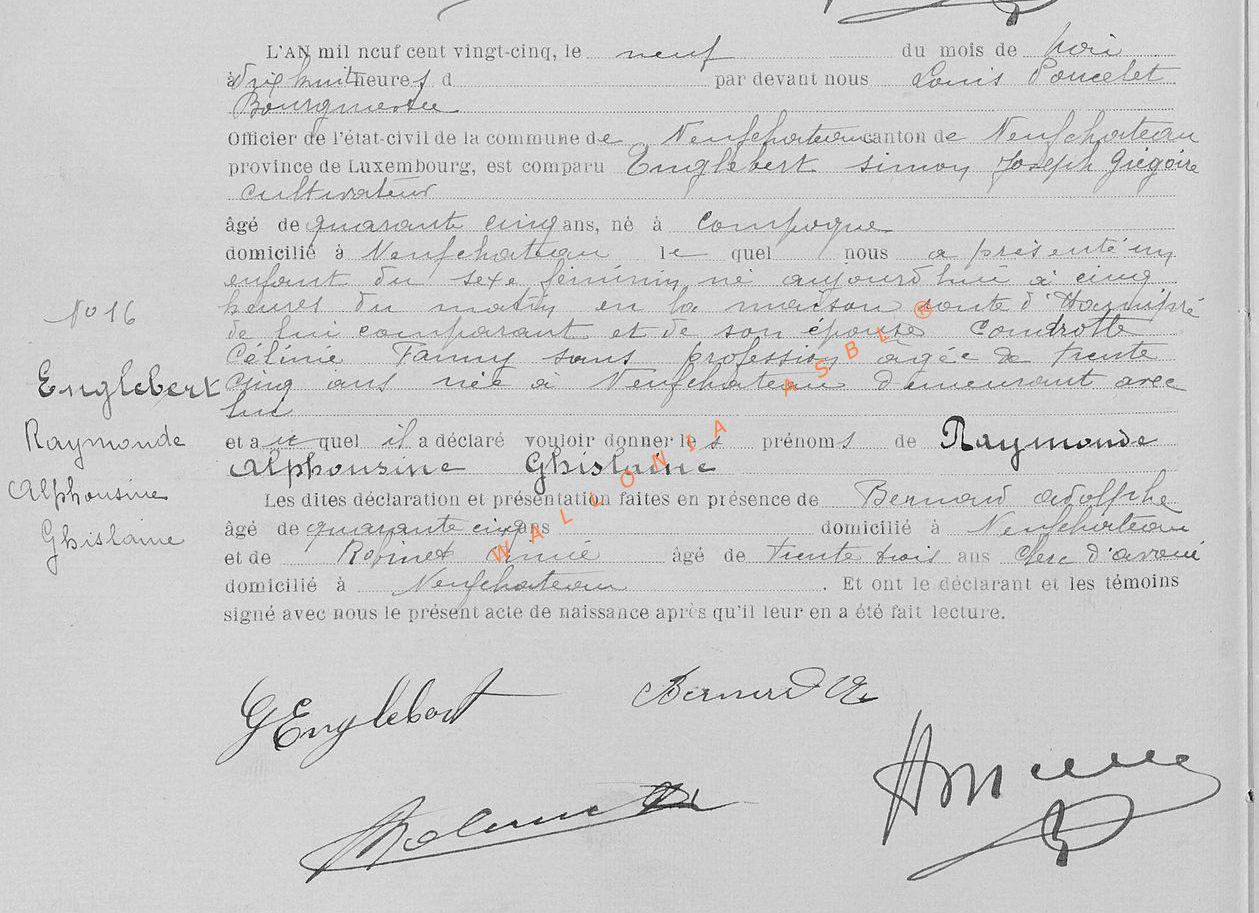 L'AN mil neuf cent vingt-cinq, le neuf du mois de
à dix huit heures d par devant nous Louis Poncelet
Bourgmestre
Officier de l'état-civil de la commune de Neufchateau canton de Neufchateau
province de Luxembourg, est comparu Englebert simon Joseph Grégoire
cultivateur
âgé de quarant cinq ans, né à Compogne
domicilié à Neufchateau le quel nous a présenté un
enfant du sexe féminin né aujourd'hui à cinq
N° 16
heures du matin en la maison route d'Hamipré
de lui comparant et de son épouse Condrotte
Céline Fanny sans profession agée de trente
Englebert
cinq ans née à Neufchateau demeurant avec
lui
Raymonde
et a quel il a déclaré vouloir donner le s prénoms de Raymonde
Alphonsine Ghislaine
Alphonsine
Les dites déclaration et présentation faites en présence de Bernard Adolphe
Ghislaine
âgé de quarante cinq ans domicilié à Neufchateau
et de âgé de trente trois ans Clerc d'avoué
domicilié à Neufchateau. Et ont le déclarant et les témoins
signé avec nous le présent acte de naissance après qu'il leur en a été fait lecture.
WALLONIA ASBL ®
GEnglebert
Bernard